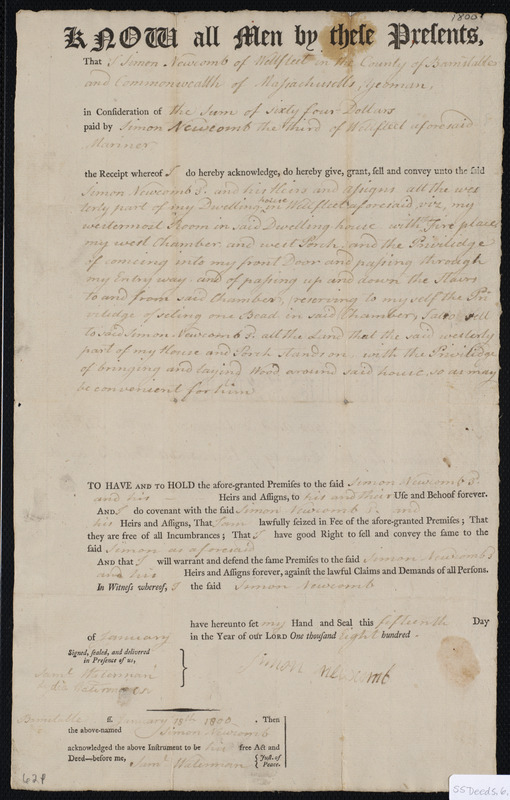 1800
KNOW all Men by these Presents,
That I Simon Newcomb of Wellfleet in the County of Barnstable
and Commonwealth of Massachusetts, Yeoman,
in Consideration of the sum of sixty four Dollars
paid by Simon Newcomb the third of Wellfleet aforesaid
Mariner
the Receipt whereof I do hereby acknowledge, do hereby give, grant, sell and convey unto the said
Simon Newcomb 3d. and his Heirs and assigns all the wes
terly part of my Dwelling house in Wellfleet aforesaid, viz, my
westermost Room in said Dwelling house with Fire place
my west Chamber and west Porch and the Priviledge
of comeing into my front Door and passing through
my Entry way and of passing up and down the Stairs
to and from said Chamber, reserving to my self the Pri
viledge of seting one Bead in said Chamber, I also sell
to said Simon Newcomb 3d. all the Land that the said westerly
part of my House and Porch Standson with the Priviledge
of bringing and laying Wood around said house, so as may
be convenient for him
TO HAVE AND TO HOLD the afore-granted Premises to the said Simon Newcomb 3d.
and his Heirs and Assigns, to his and their Use and Behoof forever.
AND I do covenant with the said Simon Newcomb 3d. and
his Heirs and Assigns, That I am lawfully seized in Fee of the afore-granted Premises; That
they are free of all Incumbrances; That I have good Right to sell and convey the same to the
said Simon as aforesaid
And that I will warrant and defend the same Premises to the said Simon Newcomb 3d
and his Heirs and Assigns forever, against the lawful Claims and Demands of all Persons.
In Witness whereof, I the said Simon Newcomb
have hereunto set my Hand and Seal this fifteenth Day
of January in the Year of our LORD One thousand eight hundred.
Signed, sealed, and delivered
in Presence of us,
Saml. Waterman
Simon Newcomb
Barnstable ss. January 18th 1800. Then
the above-named Simon Newcomb
acknowledged the above Instrument to be his free Act and
Deed—before me, Saml. Waterman { Just. of Peace.
SS Deeds.6.